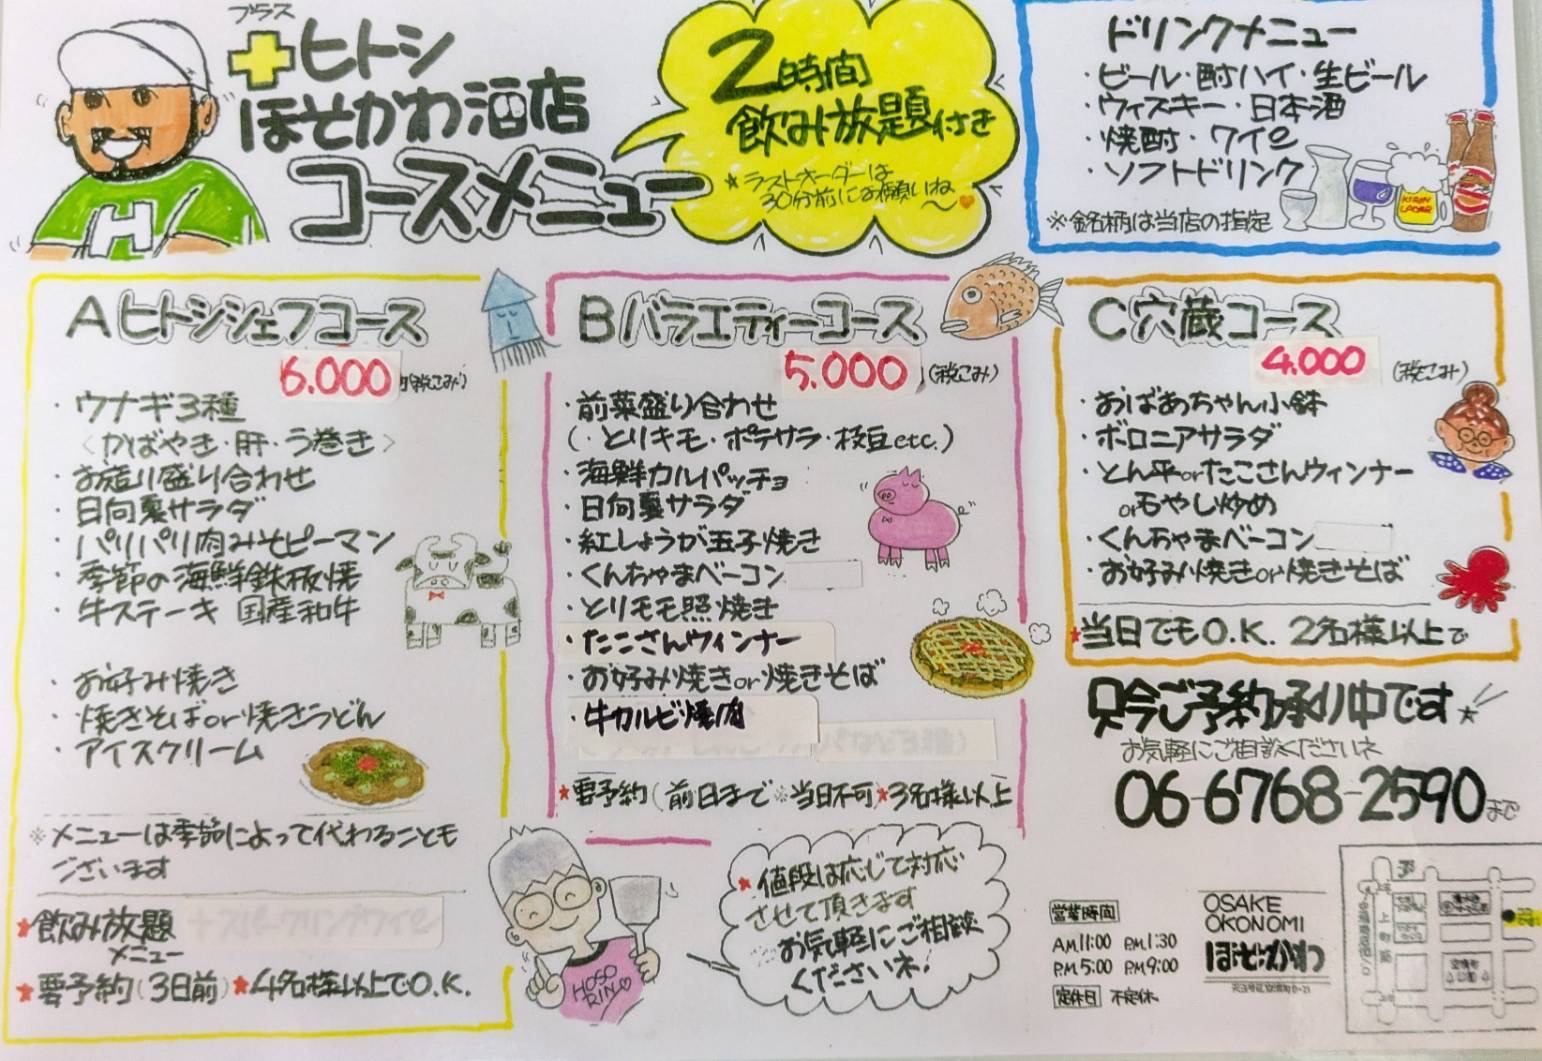 プラス
＋ヒトシ
ほそかわ酒店
コースメニュー
2時間
飲み放題付き
★ラストオーダーは
30分前にお願いね
～
ドリンクメニュー
・ビール・酎ハイ・生ビール
・ウィスキー・日本酒
・焼酎・ワイン
・ソフトドリンク
KIRIN
LAGER
※銘柄は当店の指定
H
Aヒトシシェフコース
6.000 (税こみ)
・ウナギ3種
〈かばやき・肝・う巻き〉
・お造り盛り合わせ
・日向夏サラダ
・パリパリ肉みそピーマン
・季節の海鮮鉄板焼
・牛ステーキ 国産和牛
・お好み焼き
・焼きそばor焼きうどん
・アイスクリーム
※メニューは季節によって代わることも
ございます
★飲み放題
メニュー
+スパークリングワイン
★要予約(3日前)★4名様以上でO.K.
Bバラエティーコース
5.000 (税こみ)
・前菜盛り合わせ
(・とりキモ・ポテサラ・枝豆etc.)
・海鮮カルパッチョ
・日向夏サラダ
・紅しょうが玉子焼き
・くんちゃまベーコン
・とりモモ照焼き
・たこさんウィンナー
・お好み焼きor焼きそば
・牛カルビ焼肉
★要予約(前日まで※当日不可★3名様以上
C穴蔵コース
4.000 (税こみ)
・おばあちゃん小鉢
・ボロニアサラダ
・とん平orたこさんウィンナー
orもやし炒め
・くんちゃまベーコン
・お好み焼きor焼きそば
★当日でもO.K. 2名様以上で
只今ご予約承り中です
お気軽にご相談くださいネ
06-6768-2590まで
HOSO
RINO
★値段は応じて対応
させて頂きます
お気軽にご相談
くださいネ!
営業時間
A.M.11:00 P.M.1:30
P.M.5:00 P.M.9:00
定休日 不定休
OSAKE
OKONOMI
ほそかわ
上町筋